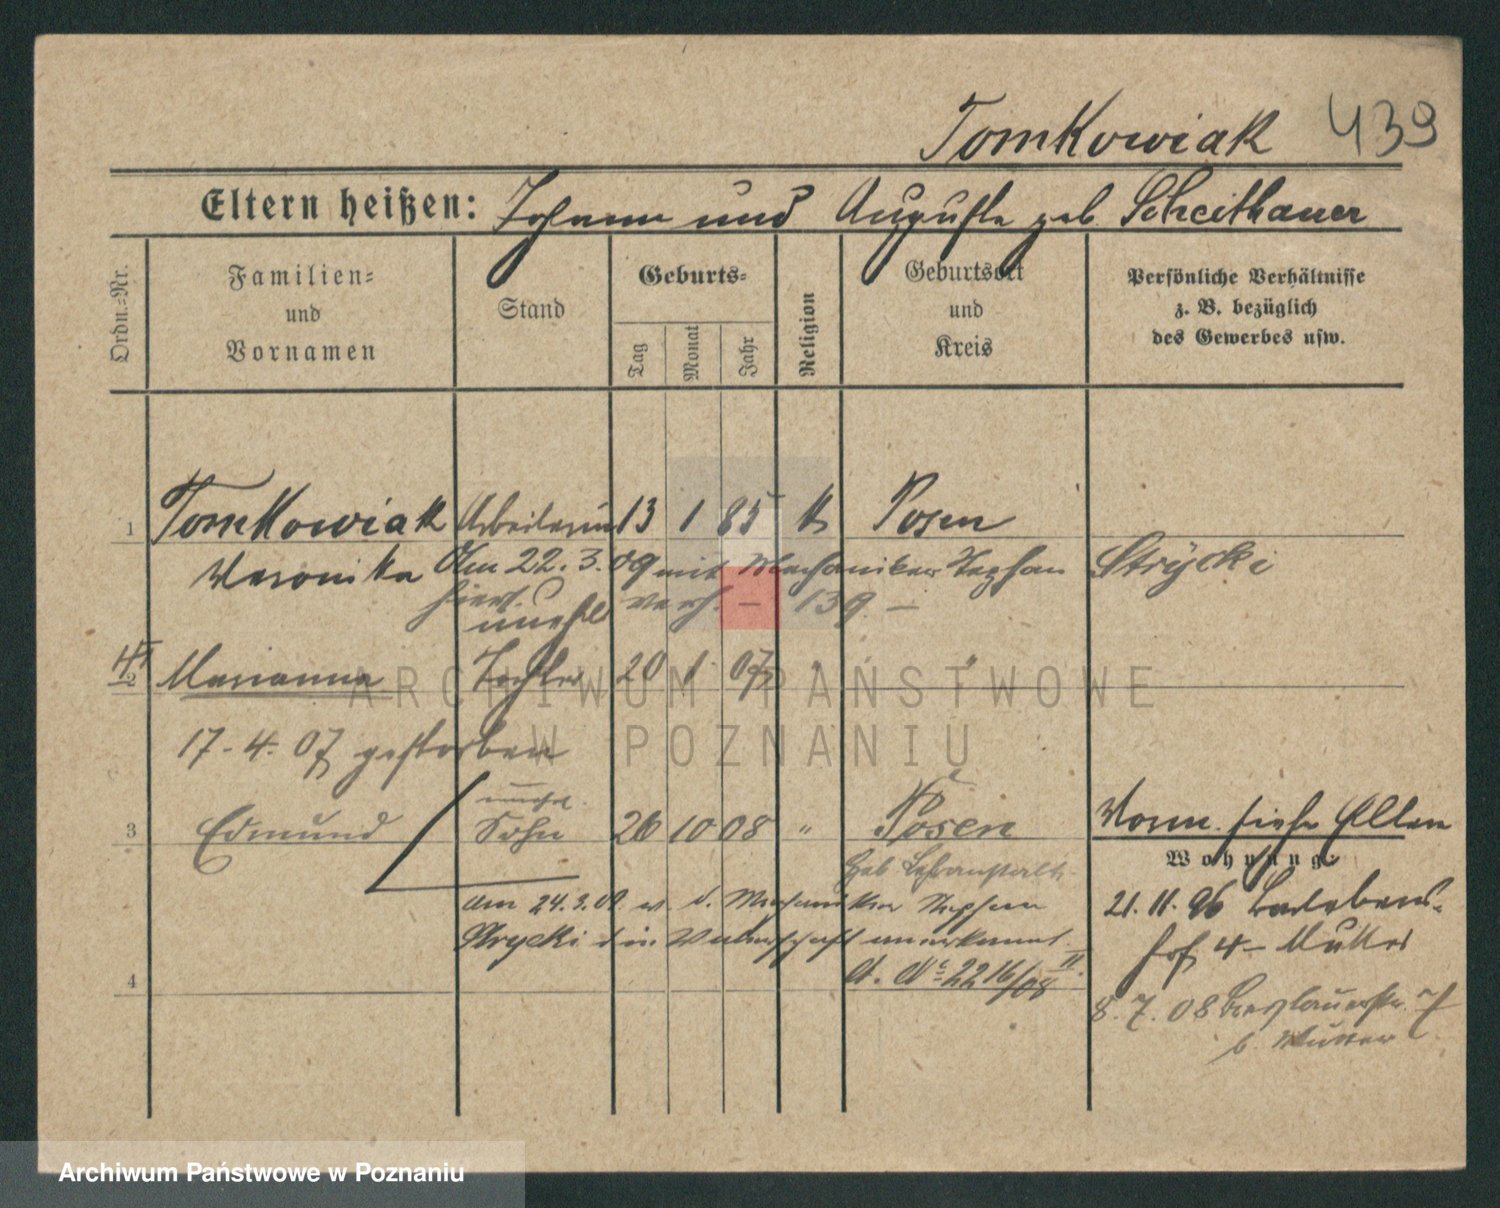 Tomkowiak 439
Eltern heißen: Johann und Auguste geb. Scheithauer
Ordn.=Nr.
Familien=
und
Vornamen
Stand
Geburts=
Tag
Monat
Jahr
Religion
Geburtsort
und
Kreis
Persönliche Verhältnisse
z. B. bezüglich
des Gewerbes usw.
1 Tomkowiak Arbeiterin 13 1 85 k Posen
Veronika Am 22. 3. 09 mit Mechaniker Stephan Strycki
hier verh. – 139 –
unehl
2 Marianna Tochter 20 1 07 " "
17. 4. 07 gestorben
unehel.
3 Edmund Sohn 26 10 08 " Posen
Geb. Hebanstalt
am 24. 3. 09. v. d. Mechaniker Stephan
Strycki die Vaterschaft anerkannt.
4 A. No 2216/08 II.
Vorm. siehe Eltern
Wohnung:
21. 11. 96
hof 4 Mutter
8. 7. 08 Breslauerstr.
b. Mutter
ARCHIWUM PAŃSTWOWE
W POZNANIU
Archiwum Państwowe w Poznaniu